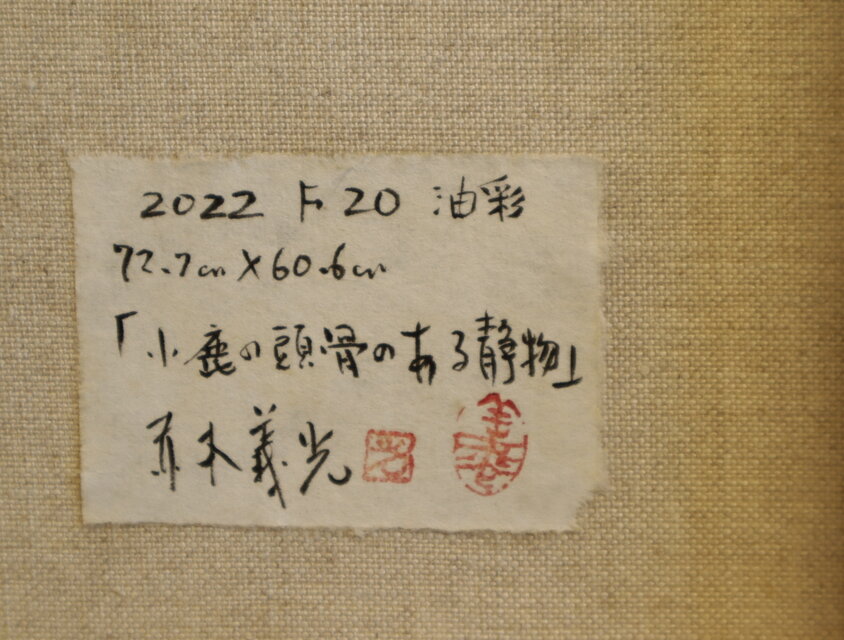 2022 F20 油彩
72.7cm×60.6cm
「小鹿の頭骨のある静物」
並木義光